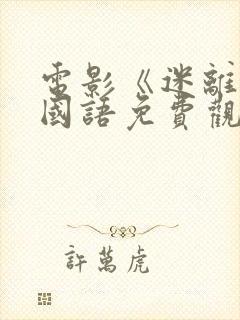 電影《迷離
國語免費觀
許萬虎